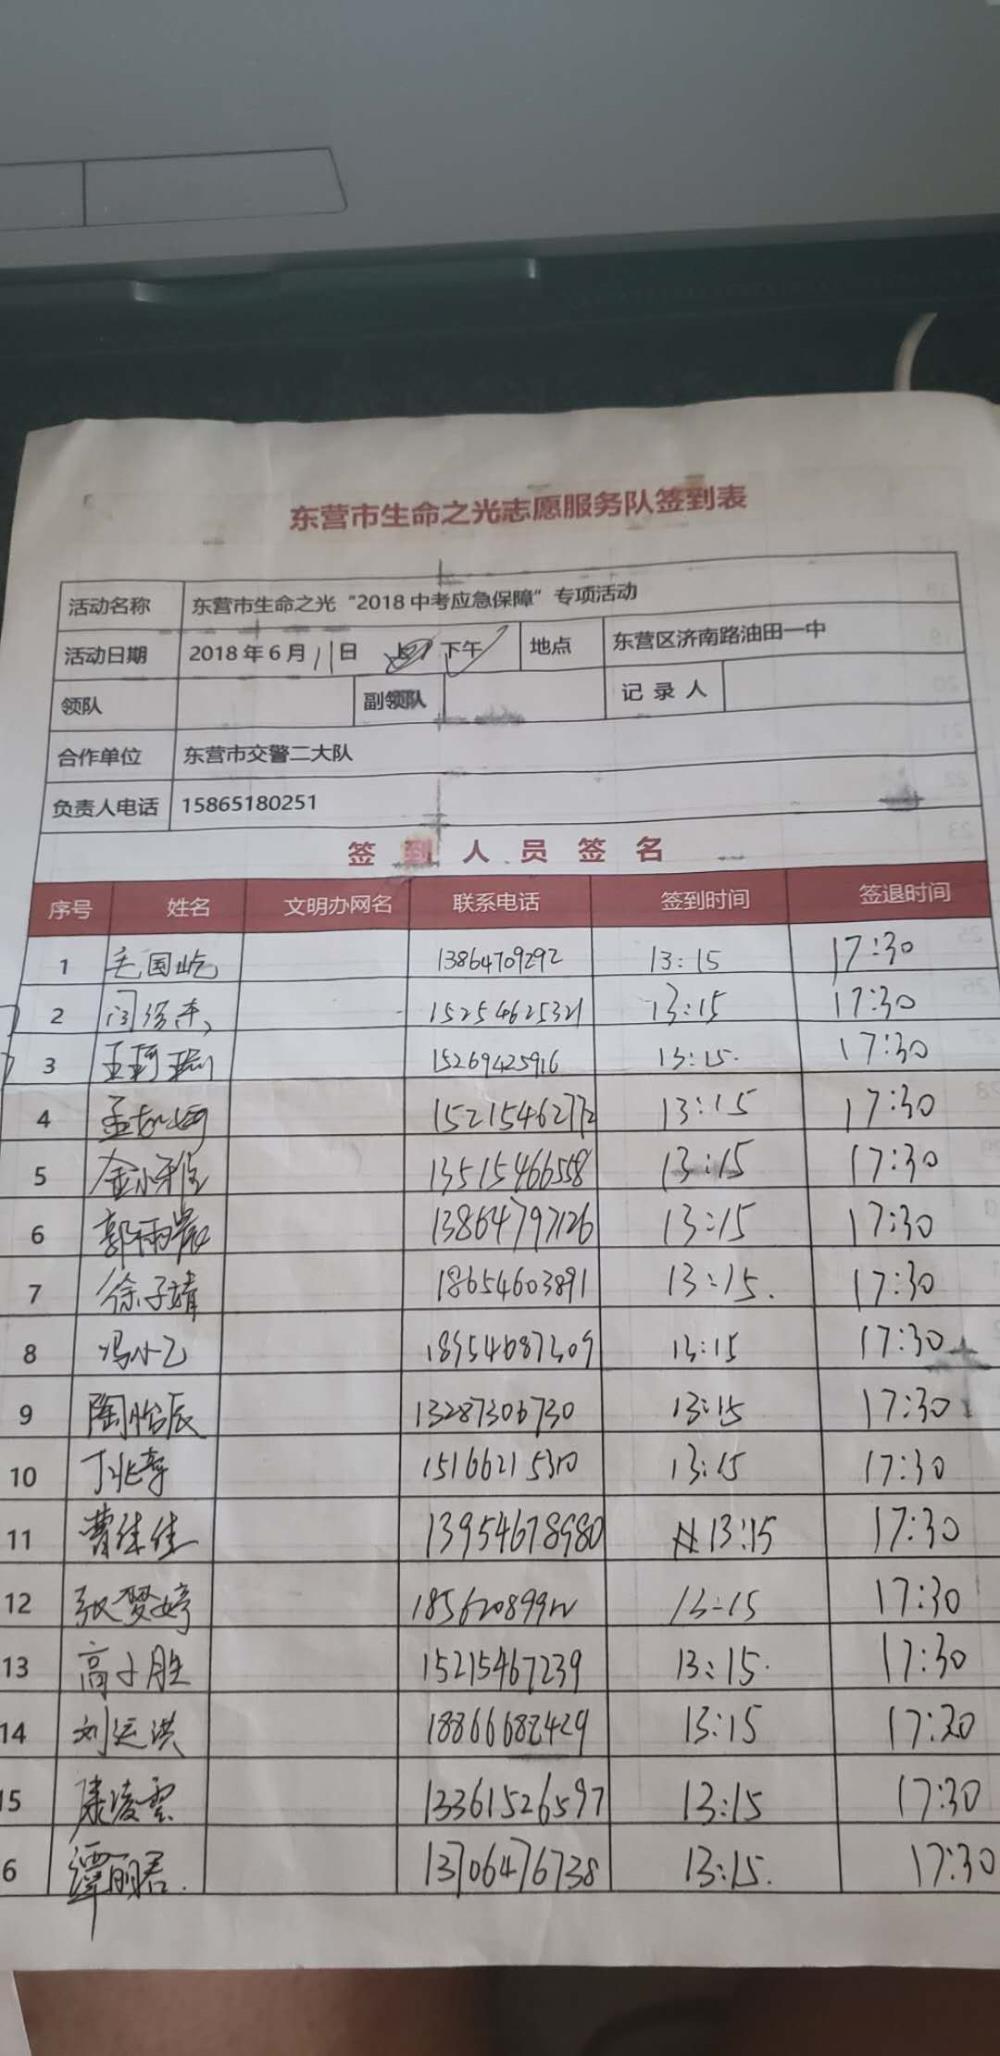 东营市生命之光志愿服务队签到表
活动名称 东营市生命之光“2018中考应急保障”专项活动
活动日期 2018年6月11日 下午 地点 东营区济南路油田一中
领队 副领队 记录人
合作单位 东营市交警二大队
负责人电话 15865180251
签到人员签名
序号 姓名 文明办网名 联系电话 签到时间 签退时间
1 毛国屹 13864709292 13:15 17:30
2 15254625321 13:15 17:30
3 15269425916 13:15 17:30
4 15215462772 13:15 17:30
5 13515466558 13:15 17:30
6 13864797126 13:15 17:30
7 徐子靖 18654603891 13:15 17:30
8 冯小乙 18954687309 13:15 17:30
9 陶怡辰 13287306730 13:15 17:30
10 15166215310 13:15 17:30
11 曹佳佳 13954678980 13:15 17:30
12 张梦婷 13:15 17:30
13 高子胜 15215467239 13:15 17:30
14 刘运洪 18866682429 13:15 17:30
15 康凌云 13361526597 13:15 17:30
6 谭丽君 13706476738 13:15 17:30